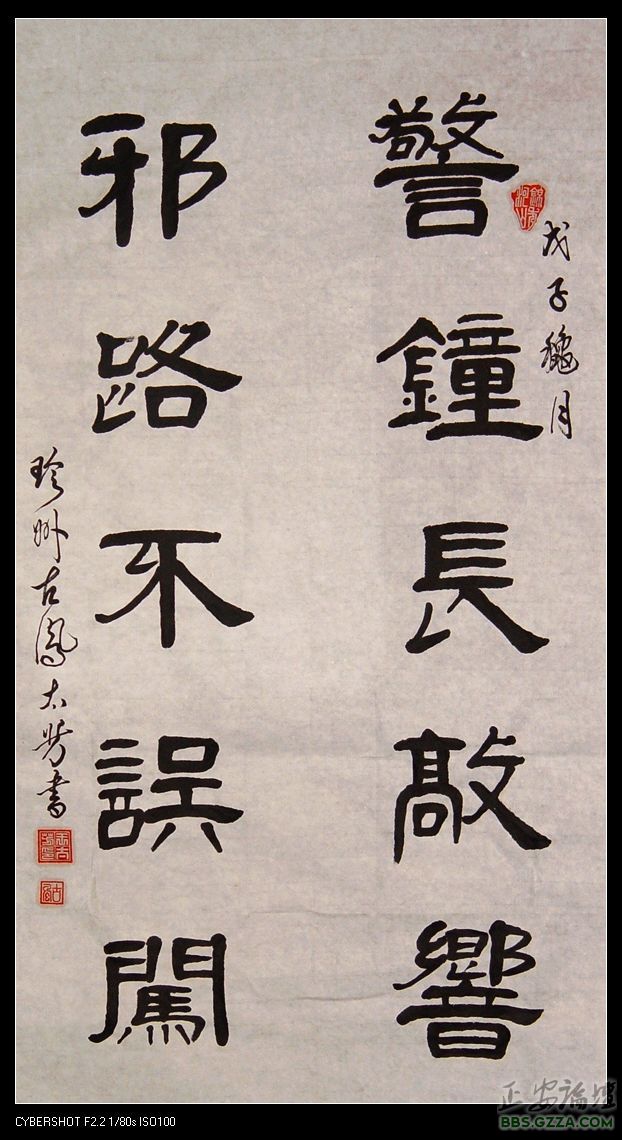 戊子穐月
警鐘長敲響
邪路不誤闖
珍州古鳳书
CYBERSHOT F2.2 1/80s ISO100
正安論壇
BBS.GZZA.COM